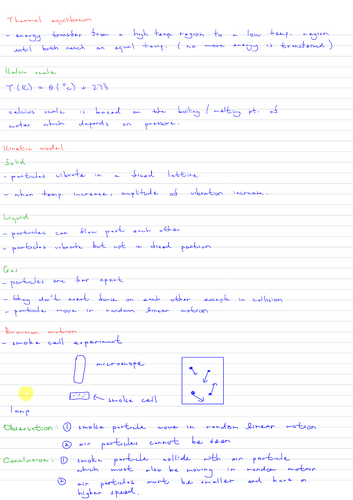 Thermal equilibrium
- energy transfer from a high temp region to a low temp. region
until both reach an equal temp. (no more energy is transferred)
Kelvin scale
T(K) = θ(°C) + 273
celcius scale is based on the boiling / melting pt. of
water which depends on pressure.
Kinetic model
Solid
- particles vibrate in a fixed lattice
- when temp. increase, amplitude of vibration increase.
Liquid
- particles can flow past each other
- particles vibrate but not in fixed position
Gas
- particles are far apart
- they don't exert force on each other except in collision
- particle move in random linear motion
Brownian motion
- smoke cell experiment
microscope
smoke cell
lamp
Observation: ① smoke particle move in random linear motion
② air particles cannot be seen
Conclusion: ① smoke particle collide with air particle
which must also be moving in random motion
② air particles must be smaller and have a
higher speed.